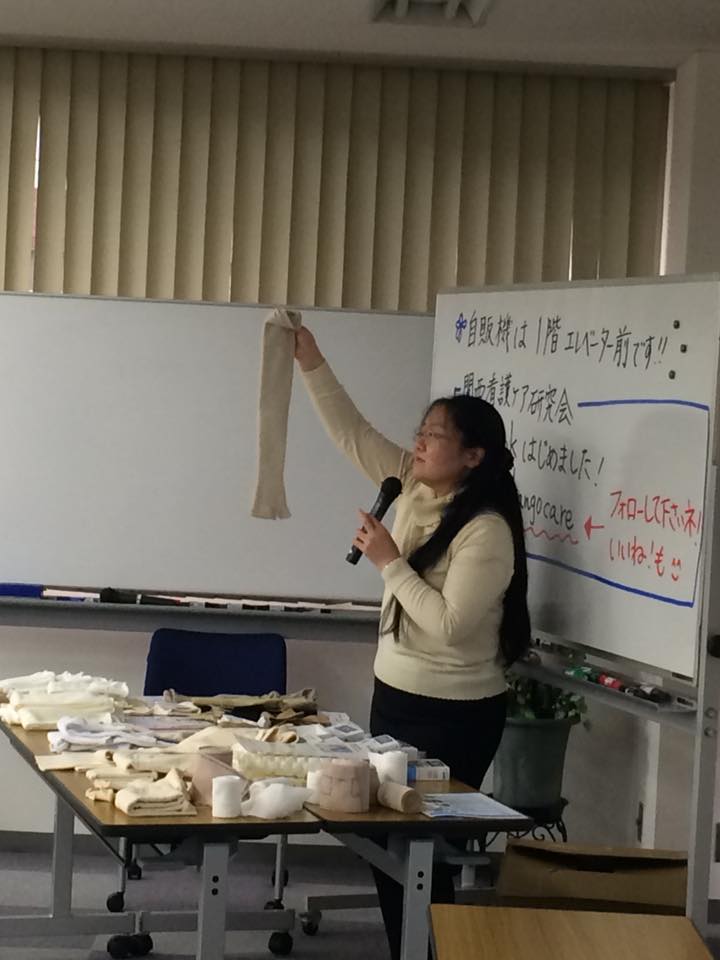 自販機は1階エレベーター前です!!
関西看護ケア研究会
はじめました!
ngocare ← フォローして下さいネ!
いいね!も